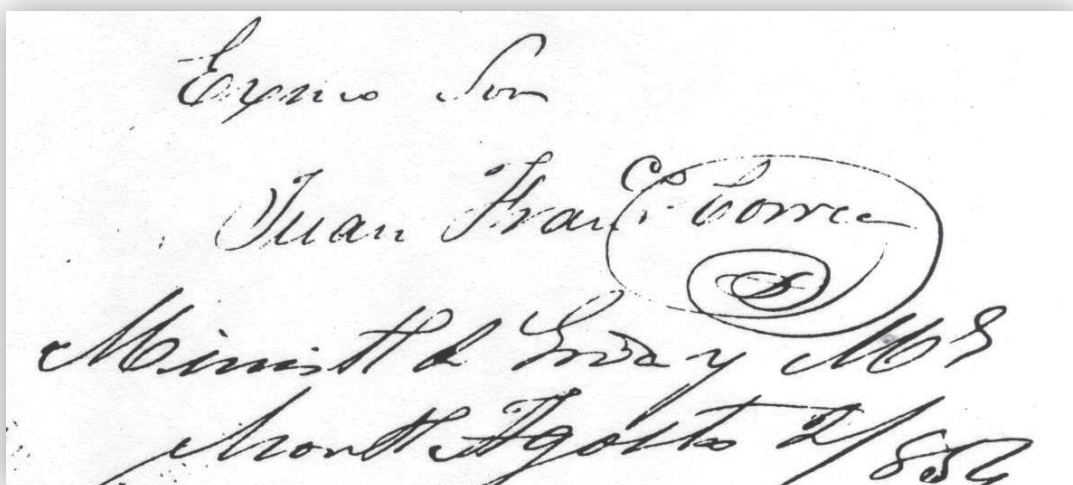 Exmo Sor
Juan Franco Correa
Minist de Gra y M
Montt Agosto 2/854